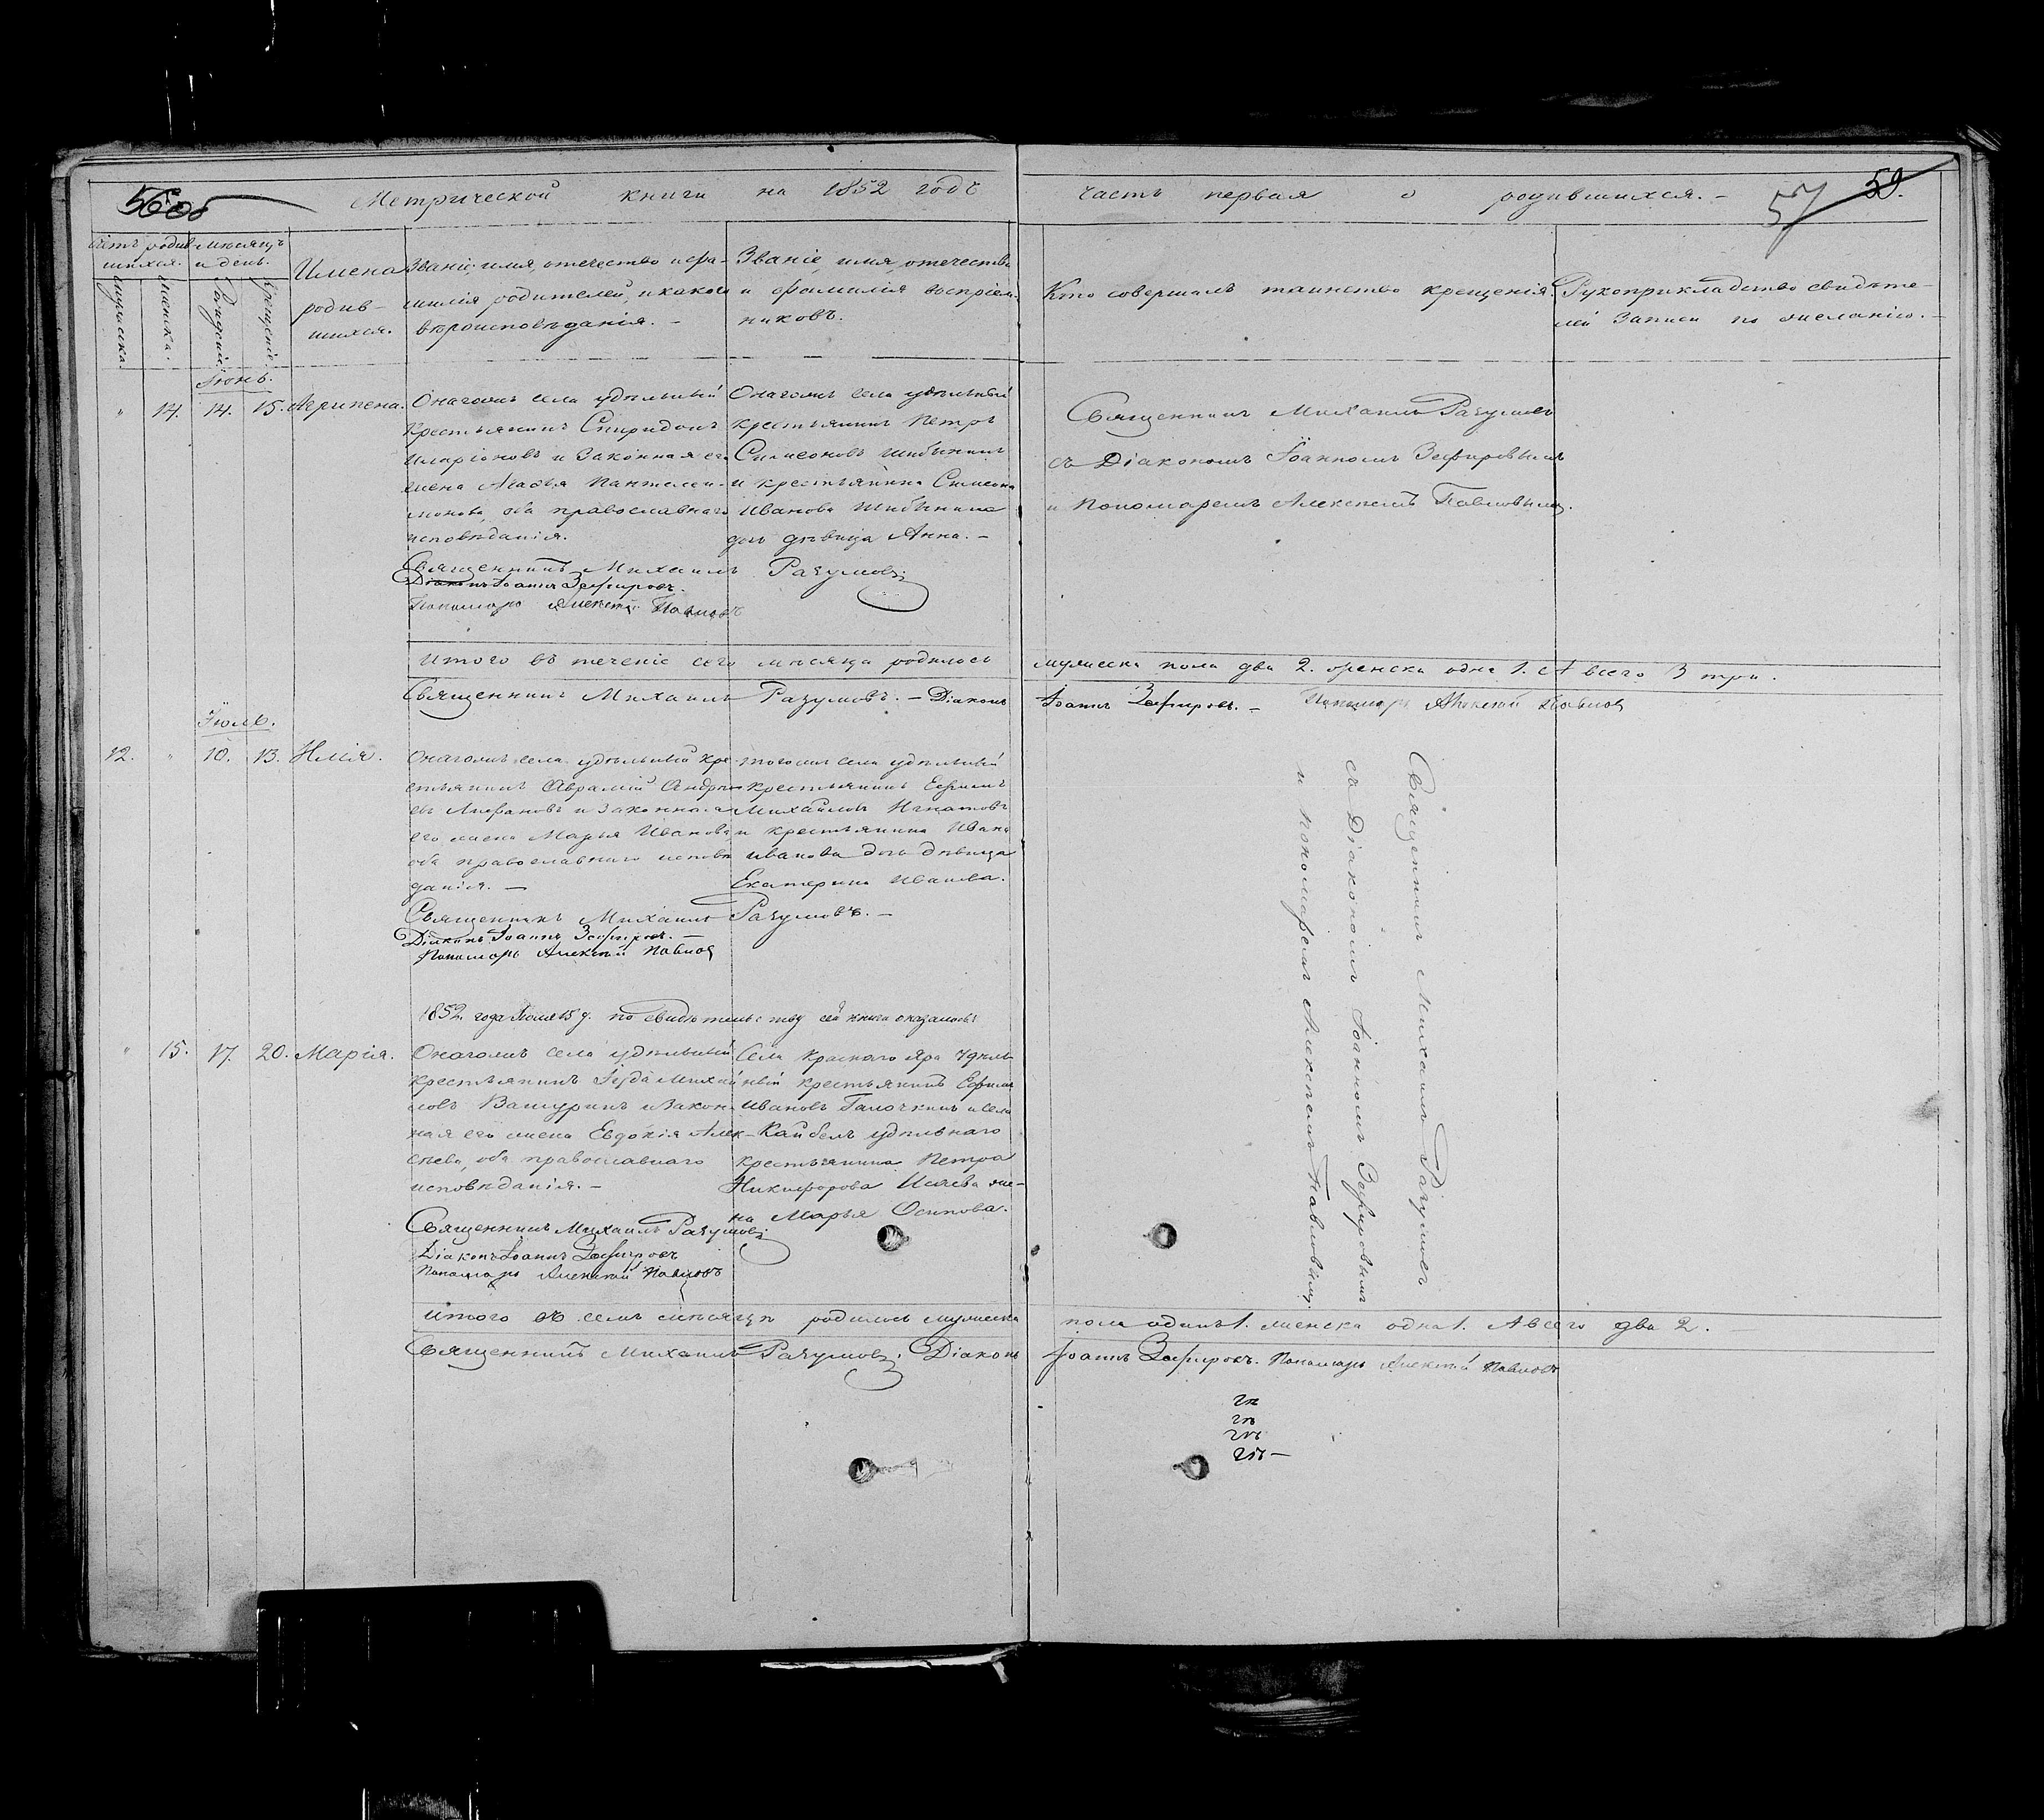 56об
Метрической книги на 1852 годъ
часть первая о родившихся. –
57
59.
Счетъ родив-
шихся.
мѣсяцъ
и день.
мужеска.
женска.
Рожденіе.
Крещеніе.
Имена
родив-
шихся.
Званіе, имя, отечество и фа-
милія родителей, и какого
вѣроисповѣданія. –
Званіе, имя, отечество
и фамилія воспріем-
никовъ.
Кто совершалъ таинство крещенія.
Рукоприкладство свидѣте-
лей записи по желанію. –
Іюнь.
" 14. 14. 15. Агрипена.
Онагожъ села удѣльный
крестьянинъ Спиридонъ
Иларіоновъ и законная его
жена Агафья Пантелеи-
монова, оба православнаго
исповѣданія.
Онагожъ села удѣльный
крестьянинъ Петръ
Симеоновъ Шибынинъ
и крестьянина Симеона
Иванова Шибынина
дочь дѣвица Анна. –
Священникъ Михаилъ Разумовъ
съ Діакономъ Іоанномъ Зефировымъ
и пономаремъ Алексѣемъ Павловымъ.
Священникъ Михаилъ Разумовъ
Діаконъ Іоаннъ Зефировъ.
Пономарь Алексѣй Павловъ
Итого въ теченіе сего мѣсяца родилось
мужеска пола два 2. женска одна 1. А всего 3 три.
Священникъ Михаилъ Разумовъ. – Діаконъ
Іоаннъ Зефировъ. – Пономарь Алексѣй Павловъ
Іюль.
12. " 10. 13. Илія.
Онагожъ села удѣльный кре-
стьянинъ Аврамій Андрее-
въ и законная
его жена Марья Иванова
оба православнаго исповѣ
данія. –
тогожъ села удѣльный
крестьянинъ Ефимъ
Михайловъ Игнатовъ
и крестьянина Ивана
Иванова дочь дѣвица
Екатерина Иванова.
Священникъ Михаилъ Разумовъ
съ Діакономъ Іоанномъ Зефировымъ
и пономаремъ Алексѣемъ Павловымъ.
Священникъ Михаилъ Разумовъ. –
Діаконъ Іоаннъ Зефировъ. –
Пономарь Алексѣй Павловъ
1852 года Іюля 15 д. по свидѣтельству сей книги оказалось:
" 15. 17. 20. Марія.
Онагожъ села удѣльный
крестьянинъ Іуда Михай
ловъ Вашуринъ и закон-
ная его жена Евдокія Алек-
сѣева, оба православнаго
исповѣданія. –
Села Краснаго Яра удѣль-
ный крестьянинъ Ефимъ
Ивановъ Галочкинъ и села
Кайбелъ удѣльнаго
крестьянина Петра
Никифорова Исаева же-
на Марья Осипова.
Священникъ Михаилъ Разумовъ
Діаконъ Іоаннъ Зефировъ
Пономарь Алексѣй Павловъ
Итого въ семъ мѣсяцѣ родилось мужеска
пола одинъ 1. женска одна 1. А всего два 2. –
Священникъ Михаилъ Разумовъ. Діаконъ
Іоаннъ Зефировъ. Пономарь Алексѣй Павловъ